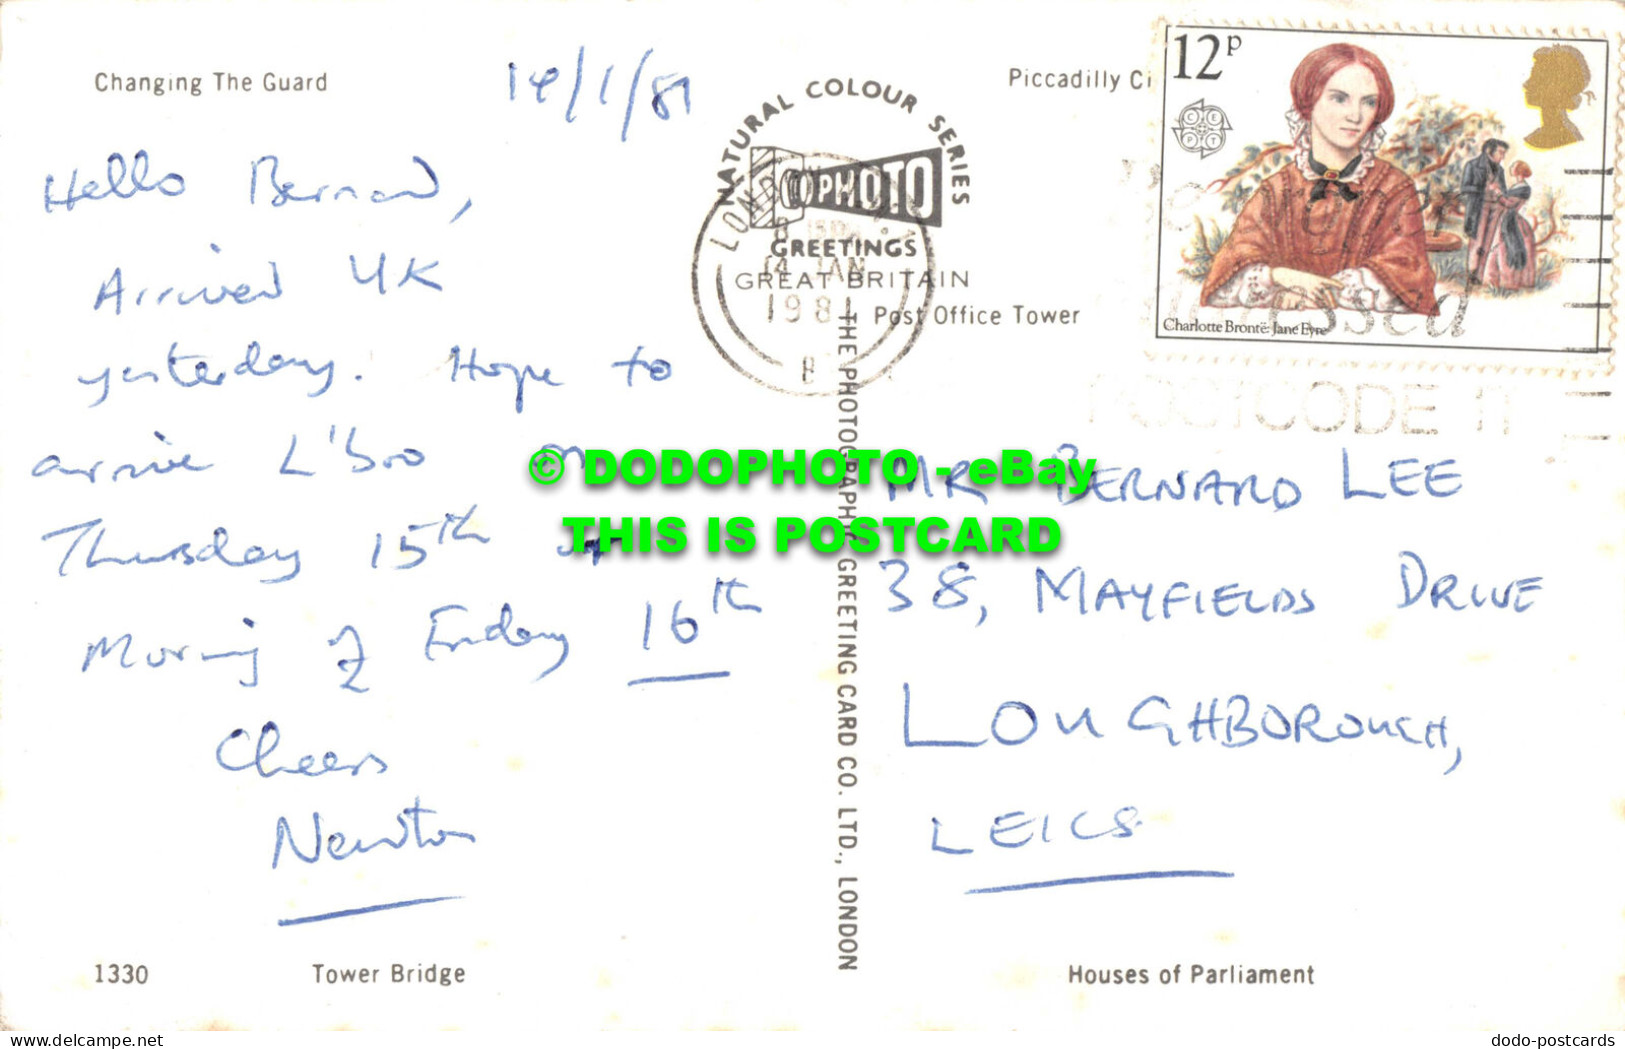 Changing The Guard
14/1/81
Hello Bernard,
Arrived UK
yesterday. Hope to
arrive L'bro on
Thursday 15th or
Morning of Friday 16th
Cheers
Newton
1330
Tower Bridge
NATURAL COLOUR SERIES
PHOTO
GREETINGS
GREAT BRITAIN
LONDON
14 JAN
1981
Post Office Tower
THE PHOTOGRAPHIC GREETING CARD CO. LTD., LONDON
Piccadilly Ci
12P
CEPT
Charlotte Brontë: Jane Eyre
POSTCODE it
MR BERNARD LEE
38, MAYFIELDS DRIVE
LOUGHBOROUGH,
LEICS
Houses of Parliament
© DODOPHOTO - eBay
THIS IS POSTCARD
www.delcampe.net
dodo-postcards